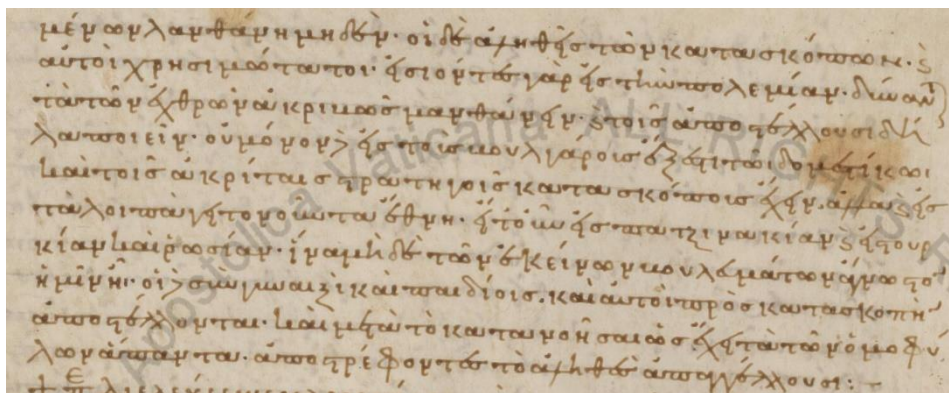 μένων λανθάνη μηδέν· οἱ δὲ ἀληθεῖς τῶν κατασκόπων· καὶ
αὐτοὶ χρησιμώτατοι· εἰσιόντες γὰρ εἰς τὴν πολεμίαν· δύναντ
τὰ τῶν ἐχθρῶν ἀκριβῶς μανθάνειν· καὶ τοῖς ἀποστέλλουσι δῆ
λα ποιεῖν· οὐ μόνον δὲ εἰς τοὺς βουλγάρους ἔξεστι τῶ δομεστίκω
καὶ τοῖς ἀκρίταις στρατηγοῖς κατασκόπους ἔχειν· ἀλλὰ καὶ εἰς
τὰ λοιπὰ γειτονοῦντα ἔθνη· εἴτουν εἰς πατζινακίαν καὶ εἰς τουρ
κίαν καὶ ῥωσίαν· ἵνα μηδὲ τῶν ἐκείνων βουλευμάτων ἄγνωστον
ἡμῖν ἦ· οἱ δὲ σὺν γυναιξὶ καὶ παιδίοις· καὶ αὐτοὶ πρὸς κατασκοπὴν
ἀποστέλλονται· καὶ μετὰ τὸ κατανοῆσαι ὡς ἔχει τὰ τῶν ὁμοφύ
λων ἅπαντα· ἀποστρέφοντες τὸ ἀληθὲς ἀπαγγέλλουσι:
Apostolica Vaticana